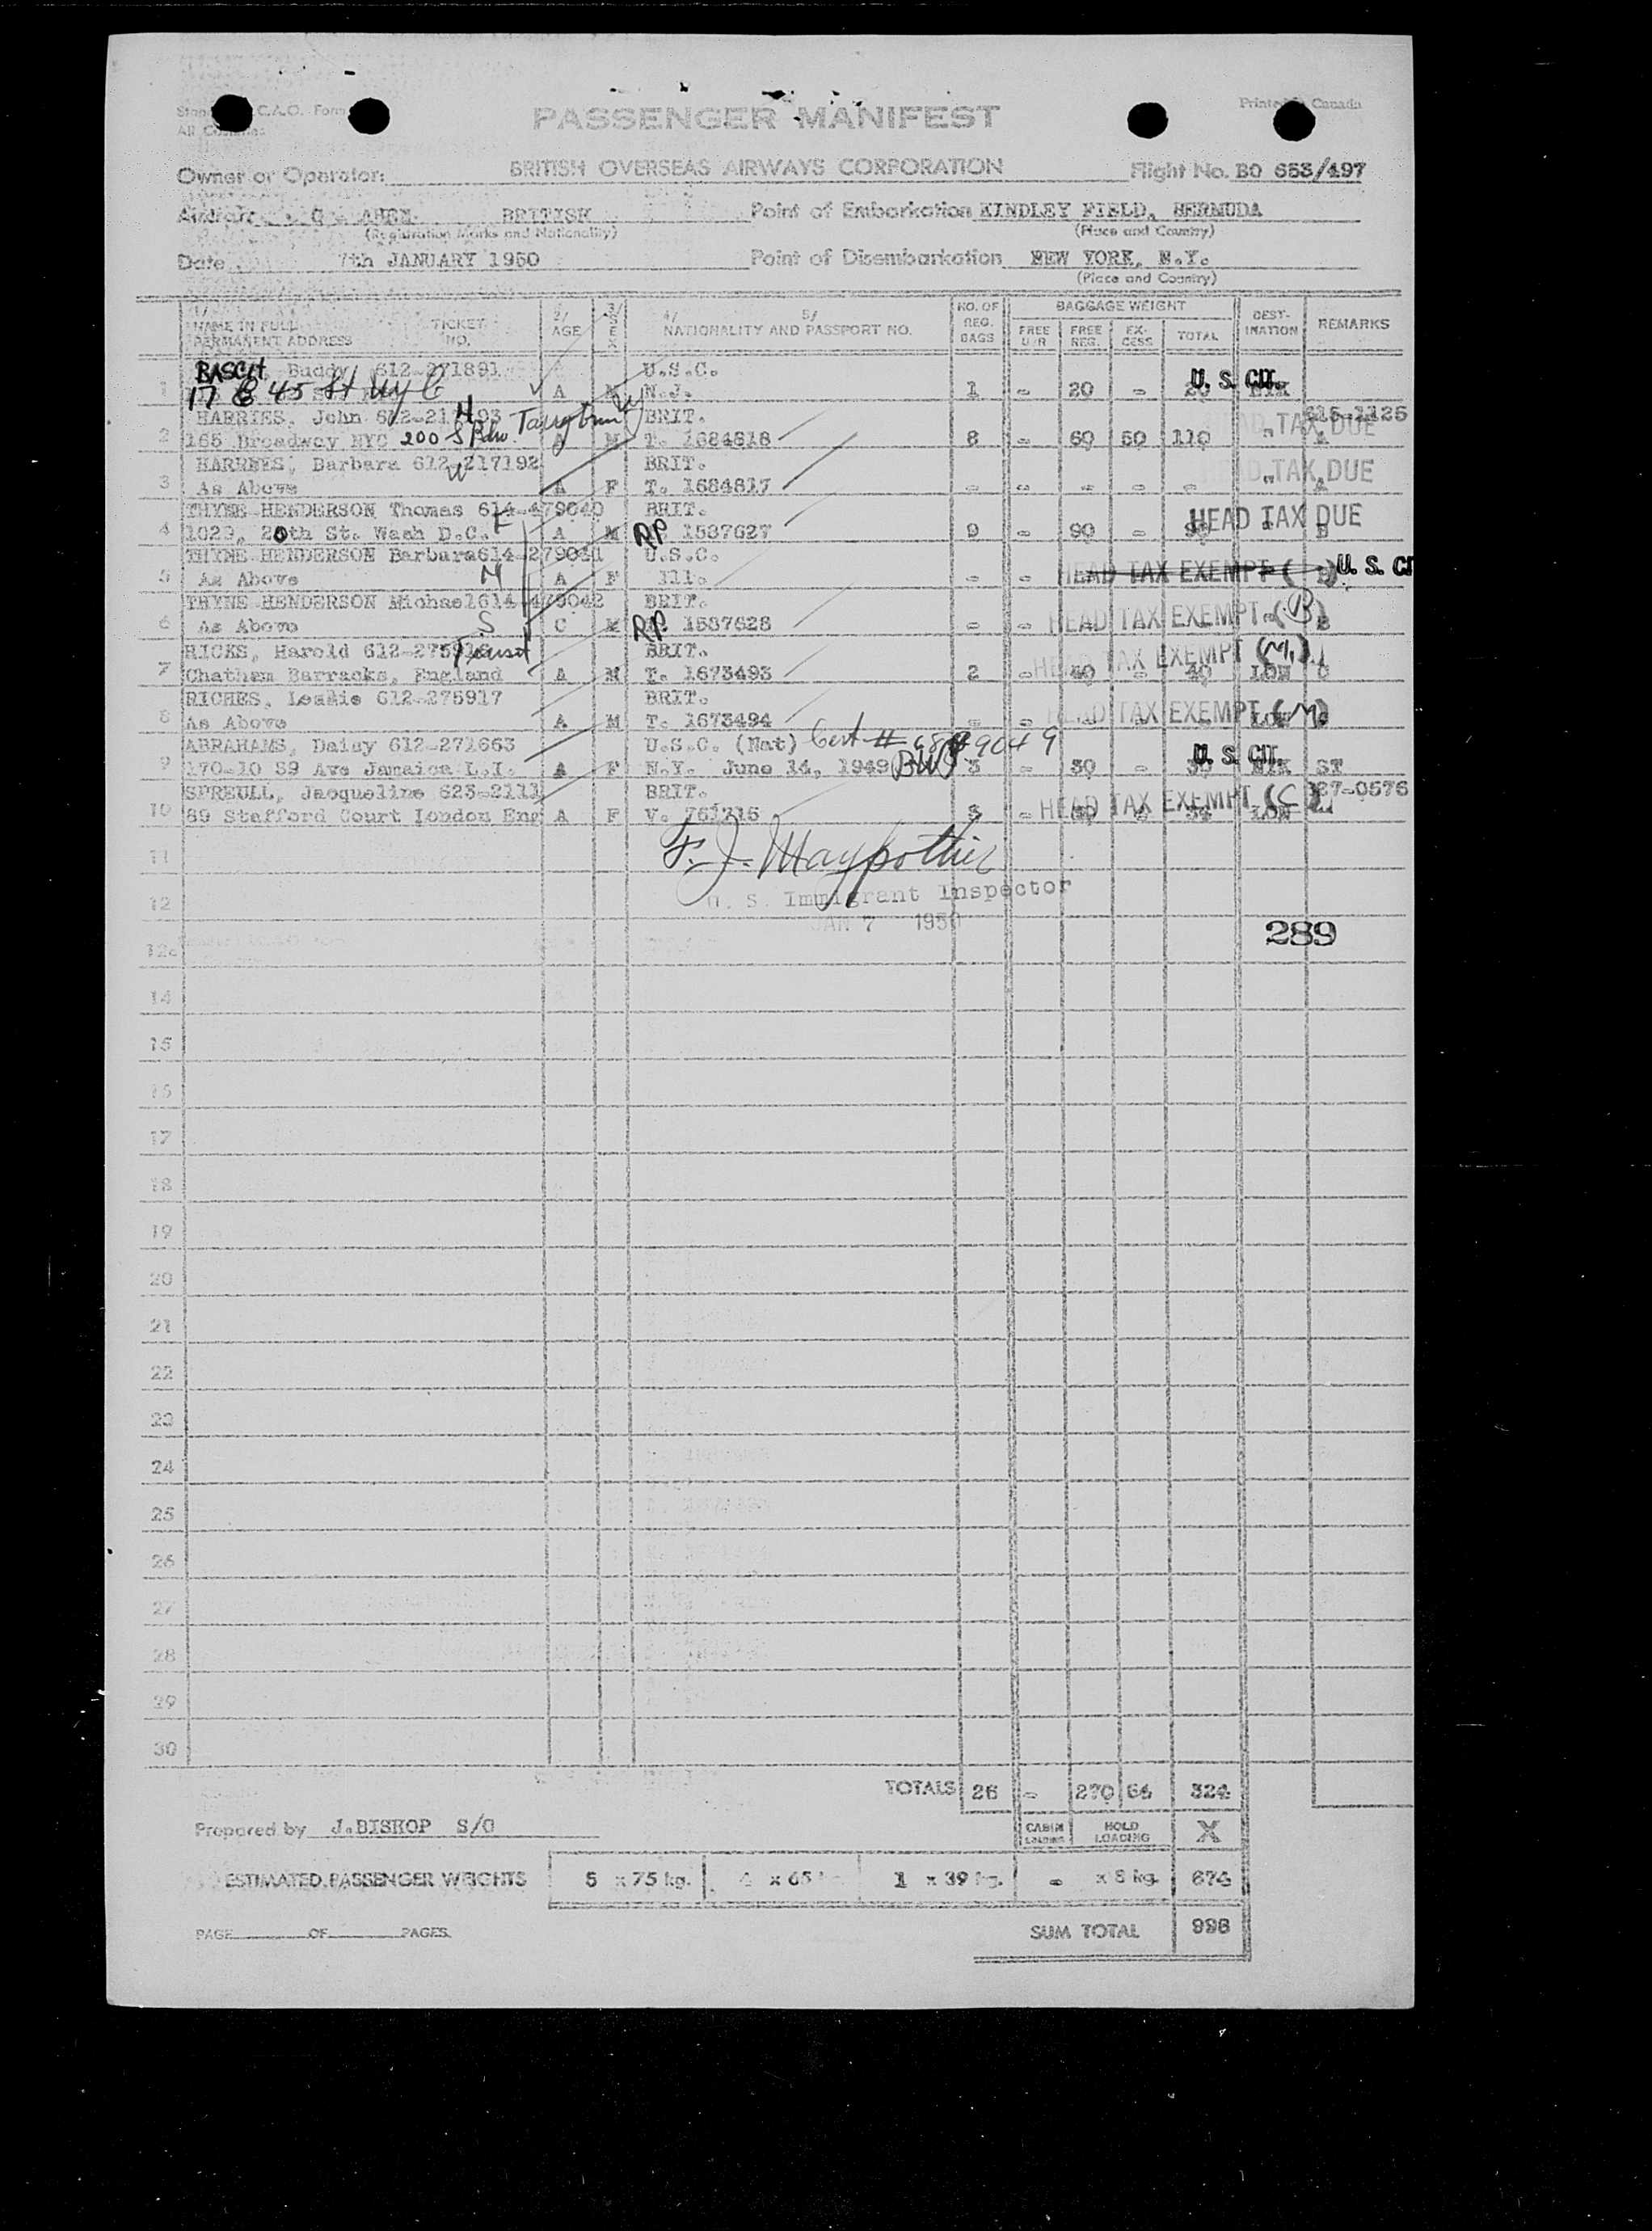 C.A.O. Form
Printed in Canada
PASSENGER MANIFEST
Owner or Operator: BRITISH OVERSEAS AIRWAYS CORPORATION Flight No. BO 653/497
Aircraft G - BRITISH Point of Embarkation KINDLEY FIELD, BERMUDA
(Registration Marks and Nationality) (Place and Country)
Date 7th JANUARY 1950 Point of Disembarkation NEW YORK, N.Y.
(Place and Country)
1/ NAME IN FULL PERMANENT ADDRESS TICKET NO. 2/ AGE 3/ SEX 4/ 5/ NATIONALITY AND PASSPORT NO. NO. OF REG. BAGS BAGGAGE WEIGHT FREE FREE REG. EX-CESS TOTAL DEST-INATION REMARKS
BASCH, Buddy 612-271891 U.S.C.
1 17 E 45 St NYC A M N.J. 1 - 20 - 20 U. S. CIT.
HARRIES, John BRIT.
2 165 Broadway NYC 200 S Bdw A M T. 1684818 8 - 60 50 110 " HEAD TAX DUE
HARRIES, Barbara 612-217192 BRIT.
3 As Above A F T. 1684817 - - - - - " HEAD TAX DUE
THYNE-HENDERSON Thomas 614-479040 BRIT.
4 1029, 20th St. Wash D.C. A M RP 1587627 9 - 90 - 90 HEAD TAX DUE B
THYNE-HENDERSON Barbara 614- U.S.C.
5 As Above A F Ill. - - HEAD TAX EXEMPT ( ) U. S. CIT
THYNE-HENDERSON Michael 614-479042 BRIT.
6 As Above C M RP 1587628 - - HEAD TAX EXEMPT (B)
RICKS, Harold BRIT.
7 Chatham Barracks, England A M T. 1673493 2 - 40 - 40 HEAD TAX EXEMPT (M) LON C
RICHES, Leslie 612-275917 BRIT.
8 As Above A M T. 1673494 - - HEAD TAX EXEMPT (M)
ABRAHAMS, Daisy 612-271663 U.S.C. (Nat) Cert #
9 170-10 89 Ave Jamaica L.I. A F N.Y. June 14, 1949 3 - 30 - 30 U. S. CIT. ST
SPREULL, Jacqueline 623-2111 BRIT.
10 89 Stafford Court London Eng A F V. 3 - HEAD TAX EXEMPT (C) LON
11
12 U. S. Immigrant Inspector
JAN 7 1950
289
12a
14
15
16
17
18
19
20
21
22
23
24
25
26
27
28
29
30
TOTALS 26 - 270 54 324
Prepared by J.BISHOP S/O CABIN LOADING HOLD LOADING X
ESTIMATED PASSENGER WEIGHTS 5 x 75 kg. 4 x 65 kg. 1 x 39 kg. - x 8 kg. 674
PAGE OF PAGES SUM TOTAL 998